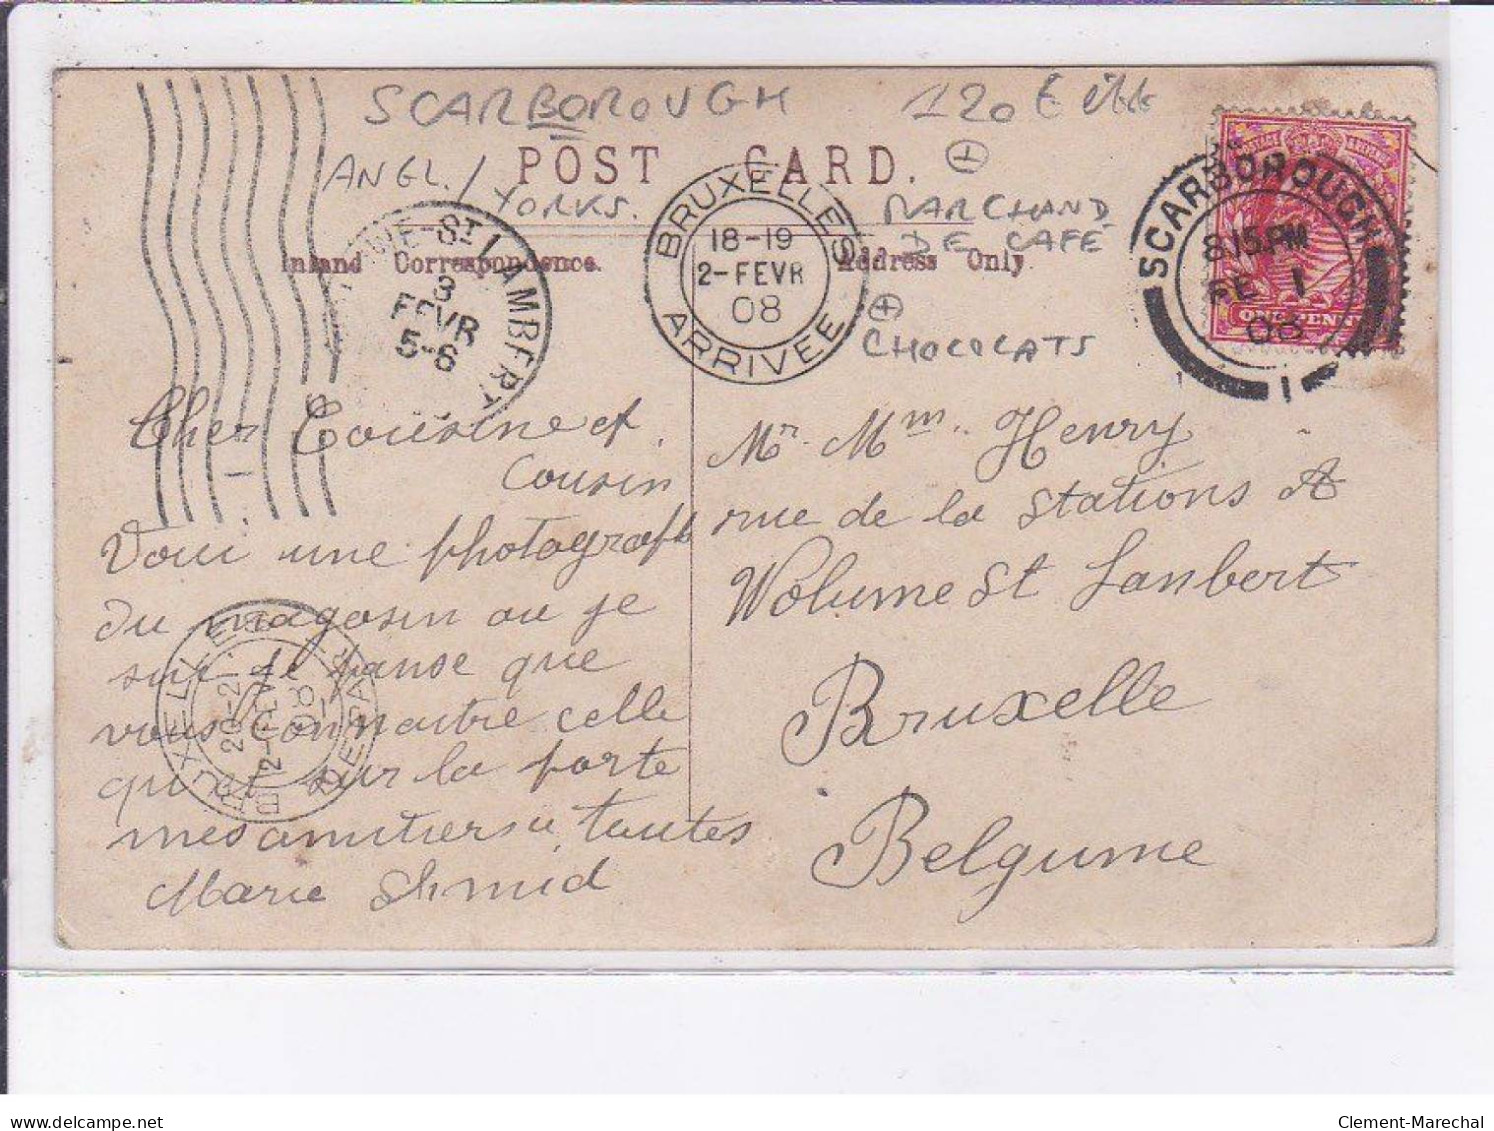 SCARBOROUGH
120 €
ANGL. / YORKS.
POST CARD.
⊕
MARCHAND
DE CAFÉ
⊕
CHOCOLATS
Inland Correspondence.
Address Only
WE-ST LAMBERT
3
FEVR
5-6
BRUXELLES
18-19
2-FEVR
08
ARRIVEE
SCARBOROUGH
8.15 PM
FE 1
08
1
ONE PENNY
Cher Cousine et
Cousin
Voici une photografh
du magasin ou je
suis je panse que
vous connaitre celle
qui et sur la porte
mes amitiers a tautes
Marie Shmid
BRUXELLES
20-2
2-FEVR
08
DEPART
Mr. Mm. Henry
rue de la Stations A
Wolume St Lanbert
Bruxelle
Belgume
delcampe.net
Clement-Marechal